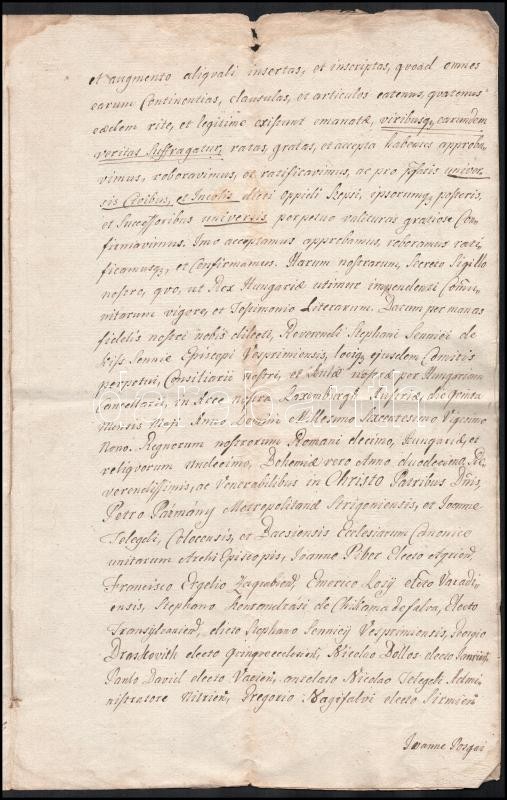 et augmento aliquali insertas, et inscriptas, quoad omnes
earum Continentias, clausulas, et articulos eatenus, quatenus
eaedem rite, et legitime existunt emanatae, viribusq, earundem
veritas Suffragatur, ratas, gratas, et accepta habentes approba,
vimus, roboravimus, et ratificavimus, ac pro univer,
sis Civibus, et Incolis dicti Oppidi Szepsi, ipsorumq posteris,
et Successoribus universis perpetuo valituras gratiose Con,
firmavimus. Imo acceptamus approbamus, roboramus rati,
ficamusq, et Confirmamus. Harum nostrarum, Secreto Sigillo
nostro, quo, ut Rex Hungariae utimur impendenti Com̄u,
nitarum vigore, et Testimonio Literarum. Datum per manus
fidelis nostri nobis dilecti, Reverendi Stephani Senniei de
Kiss Sennie Episcopi Vesprimiensis, lociq, ejusdem Comitis
perpetui, Consiliarii nostri, et Aulae nostrae per Hungariam
Cancellarii, in Arce nostra Laxemburgh Austriae, die
Mensis Maji Anno Domini Millesimo Sexcentesimo Vigesimo
Nono. Regnorum nostrorum Romani decimo, Hungariae, et
reliquorum undecimo, Bohemiae vero Anno duodecimo, Re,
verendissimis, ac Venerabilibus in Christo Patribus Dn̄is,
Petro Pázmány Metropolitanae Strigoniensis, et Joanne
Telegdi, Colocensis, et Bacsiensis Ecclesiarum Canonice
unitarum Archi Episcopis, Joanne Electo
Francisco Ergelio Zagrabien, Emerico Losy Varadi,
ensis, Stephano de Electo
Transylvanien, dicto Stephano Senniey Vesprimiensis, Georgio
Draskovith electo Quinqueecclesien, Nicolao electo
Paulo David electo Vacien, Nicolao Telegdi Admi,
nistratore Nitrien, Gregorio Nagifalvi electo Sirmien
Joanne
darabanth